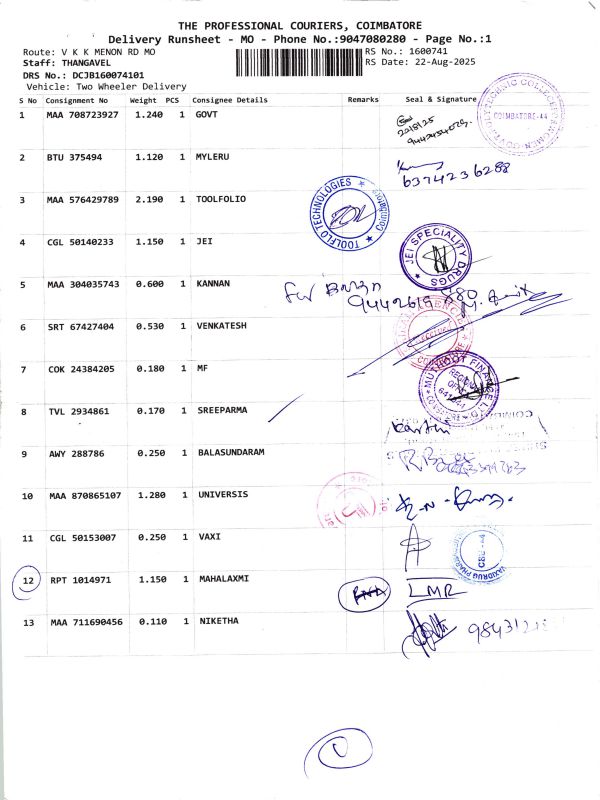 THE PROFESSIONAL COURIERS, COIMBATORE
Delivery Runsheet - MO - Phone No.:9047080280 - Page No.:1
Route: V K K MENON RD MO RS No.: 1600741
Staff: THANGAVEL RS Date: 22-Aug-2025
DRS No.: DCJB160074101
Vehicle: Two Wheeler Delivery
S No Consignment No Weight PCS Consignee Details Remarks Seal & Signature
1 MAA 708723927 1.240 1 GOVT COIMBATORE-44
2 BTU 375494 1.120 1 MYLERU 6374236288
3 MAA 576429789 2.190 1 TOOLFOLIO TOOLFLO TECHNOLOGIES
4 CGL 50140233 1.150 1 JEI JEI SPECIALITY DRUGS
5 MAA 304035743 0.600 1 KANNAN
6 SRT 67427404 0.530 1 VENKATESH
7 COK 24384205 0.180 1 MF MUTHOOT FINANCE LTD
8 TVL 2934861 0.170 1 SREEPARMA
9 AWY 288786 0.250 1 BALASUNDARAM
10 MAA 870865107 1.280 1 UNIVERSIS
11 CGL 50153007 0.250 1 VAXI
12 RPT 1014971 1.150 1 MAHALAXMI LMR
13 MAA 711690456 0.110 1 NIKETHA